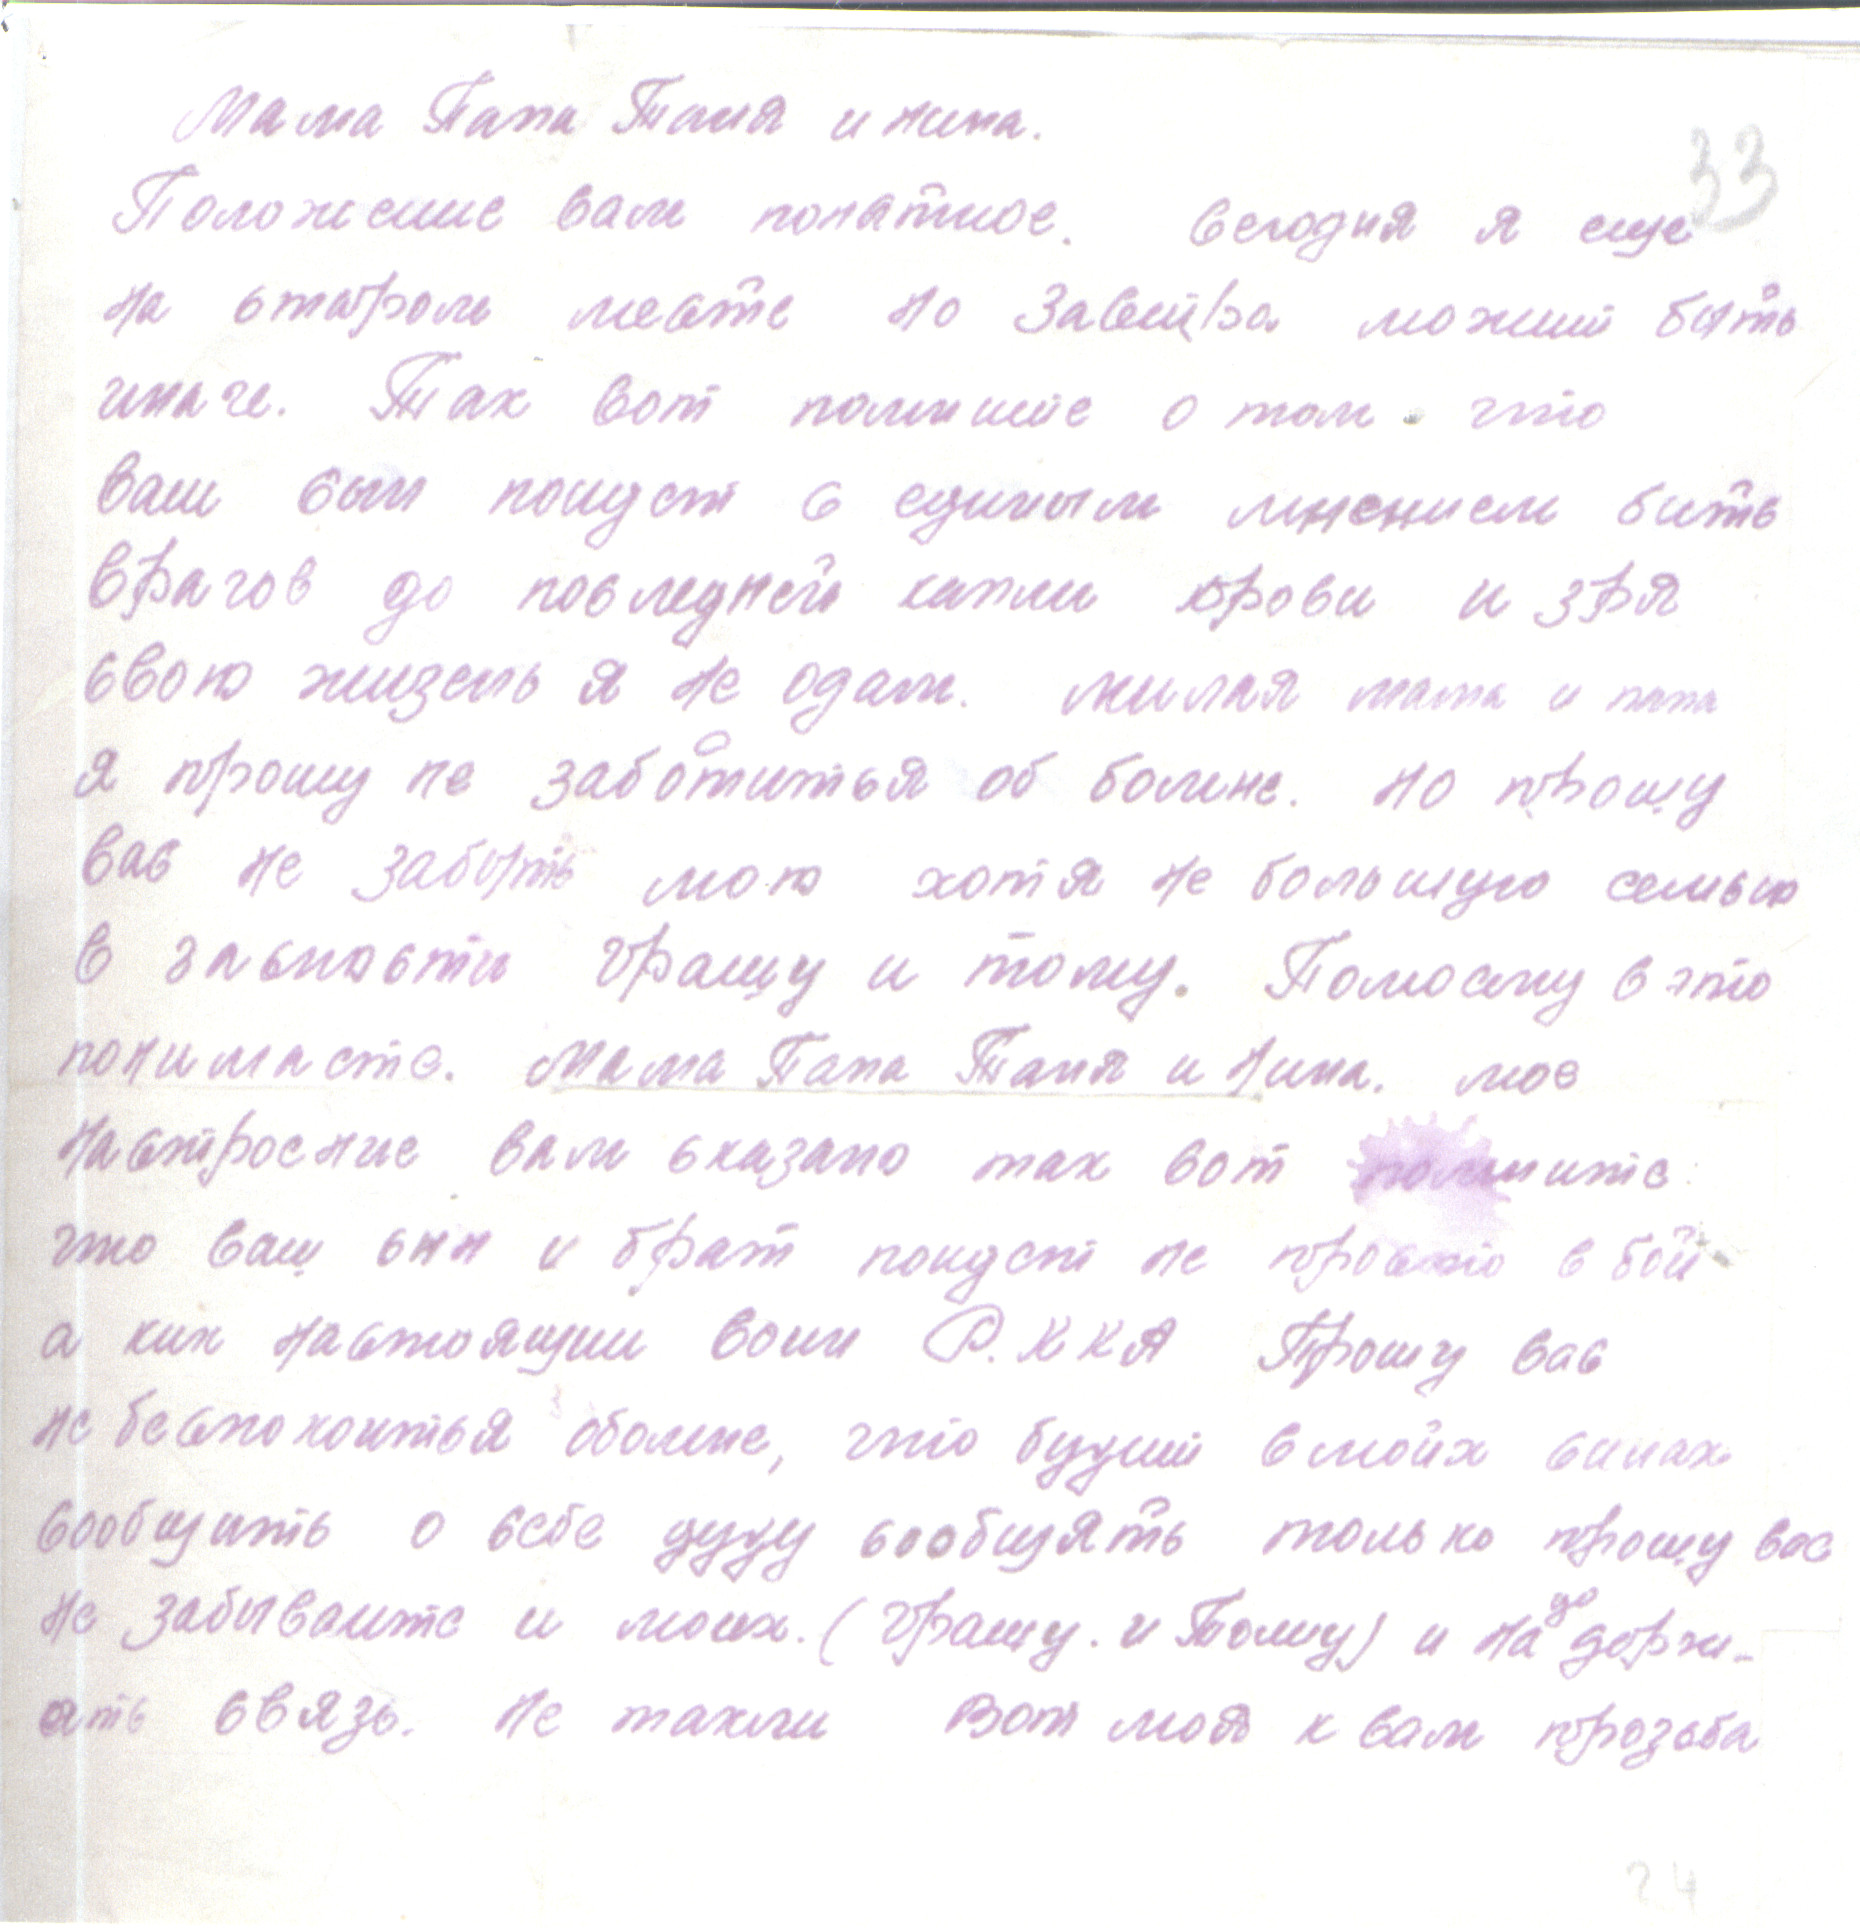 Мама Папа Таня и Нина.
33
Положение вам понатное. Сегодня я еще
на старом месте но завтра можит быть
иначе. Так вот помните о том что
ваш сын поидет с единым мнением бить
врагов до последней капли крови и зря
свою жизень я не одам. милая мама и папа
я прошу не заботиться об боmне. но прошу
вас не забыть мою хотя не большую семью
в часности Грашу и тому. Помоему в это
понимаете. Мама Папа Таня и Нина. мое
настроение вам сказано так вот помните
что ваш сын и брат поидет не просто в бой
а как настоящии воин Р.ККА Прошу вас
не беспокоиться обомне, что будит в моих силах
сообщить о себе буду сообщять только прошу вас
не забываите и моих. (Грашу. и Тому) и надо держи-
ать связь. Не такли Вот моя к вам прозьба
24